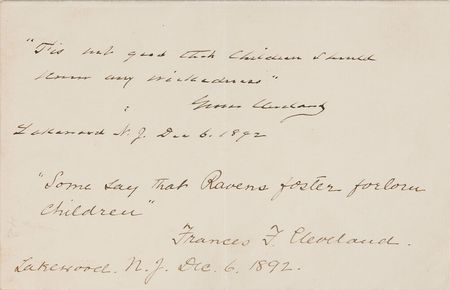 "Tis not good that Children should
know any wickedness"
Grover Cleveland
Lakewood N.J. Dec 6. 1892
"Some say that Ravens foster forlorn
children"
Frances F. Cleveland.
Lakewood. N.J. Dec. 6. 1892.